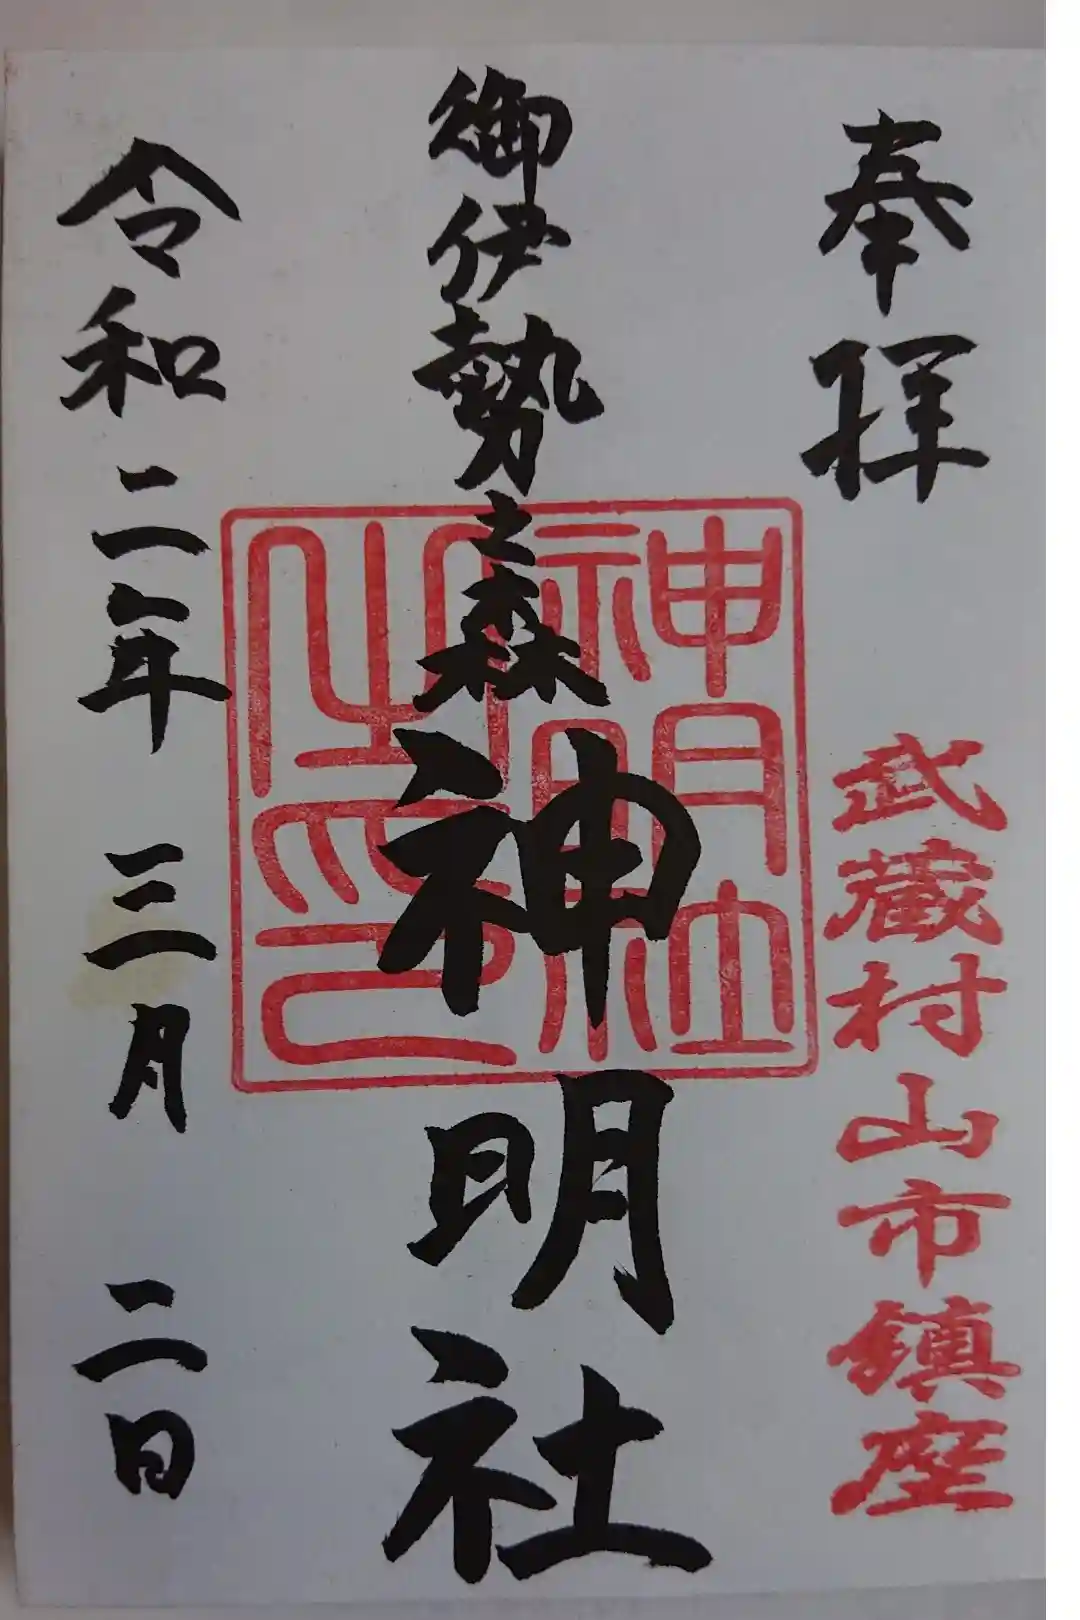 奉拝
武蔵村山市鎮座
御伊勢之森
神明社
神明社之印
令和二年 三月 二日